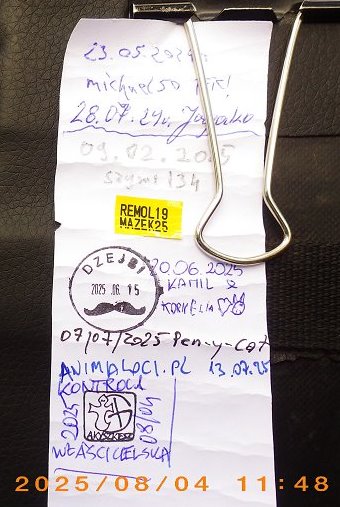 23.05.2024r.
28.07.24r.
09.02.2025
Szymi134
REMOL19
MAZEK25
DZEJBI
2025.06.15
20.06.2025
KAMIL &
KORNELIA
07/07/2025 Pen-y-Cat
ANIMALOCI.PL 13.07.25
KONTROLA
2025
08/04
WŁAŚCICIELSKA
2025/08/04 11:48